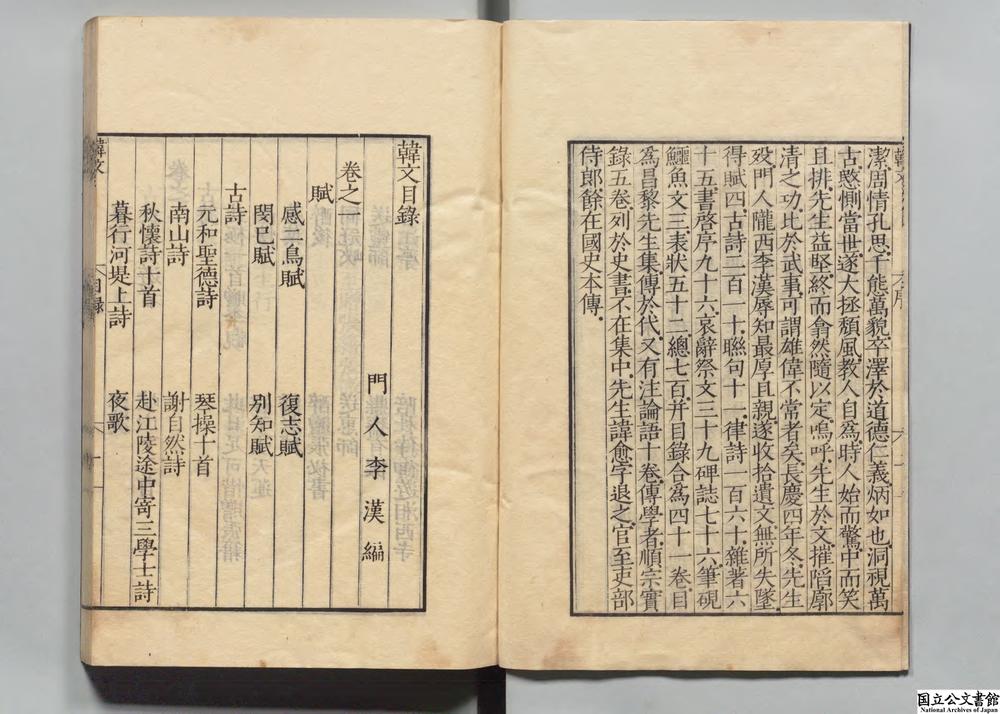 潔周情孔思千態萬貌卒澤於道德仁義炳如也洞視萬
古愍惻當世遂大拯頽風教人自爲時人始而驚中而笑
且排先生益堅終而翕然隨以定嗚呼先生於文摧陷廓
清之功比於武事可謂雄偉不常者矣長慶四年冬先生
歿門人隴西李漢辱知最厚且親遂收拾遺文無所失墜
得賦四古詩二百一十聯句十一律詩一百六十雜著六
十五書啓序九十六哀辭祭文三十九碑誌七十六筆硯
鱷魚文三表狀五十二總七百并目錄合爲四十一卷目
爲昌黎先生集傳於代又有注論語十卷傳學者順宗實
錄五卷列於史書不在集中先生諱愈字退之官至吏部
侍郎餘在國史本傳
韓文目錄
門人李漢編
卷之一
賦
感二鳥賦 復志賦
閔已賦 别知賦
古詩
元和聖德詩 琴操十首
南山詩 謝自然詩
秋懷詩十一首 赴江陵途中寄三學士詩
暮行河堤上詩 夜歌
韓文
目録
一
国立公文書館
National Archives of Japan